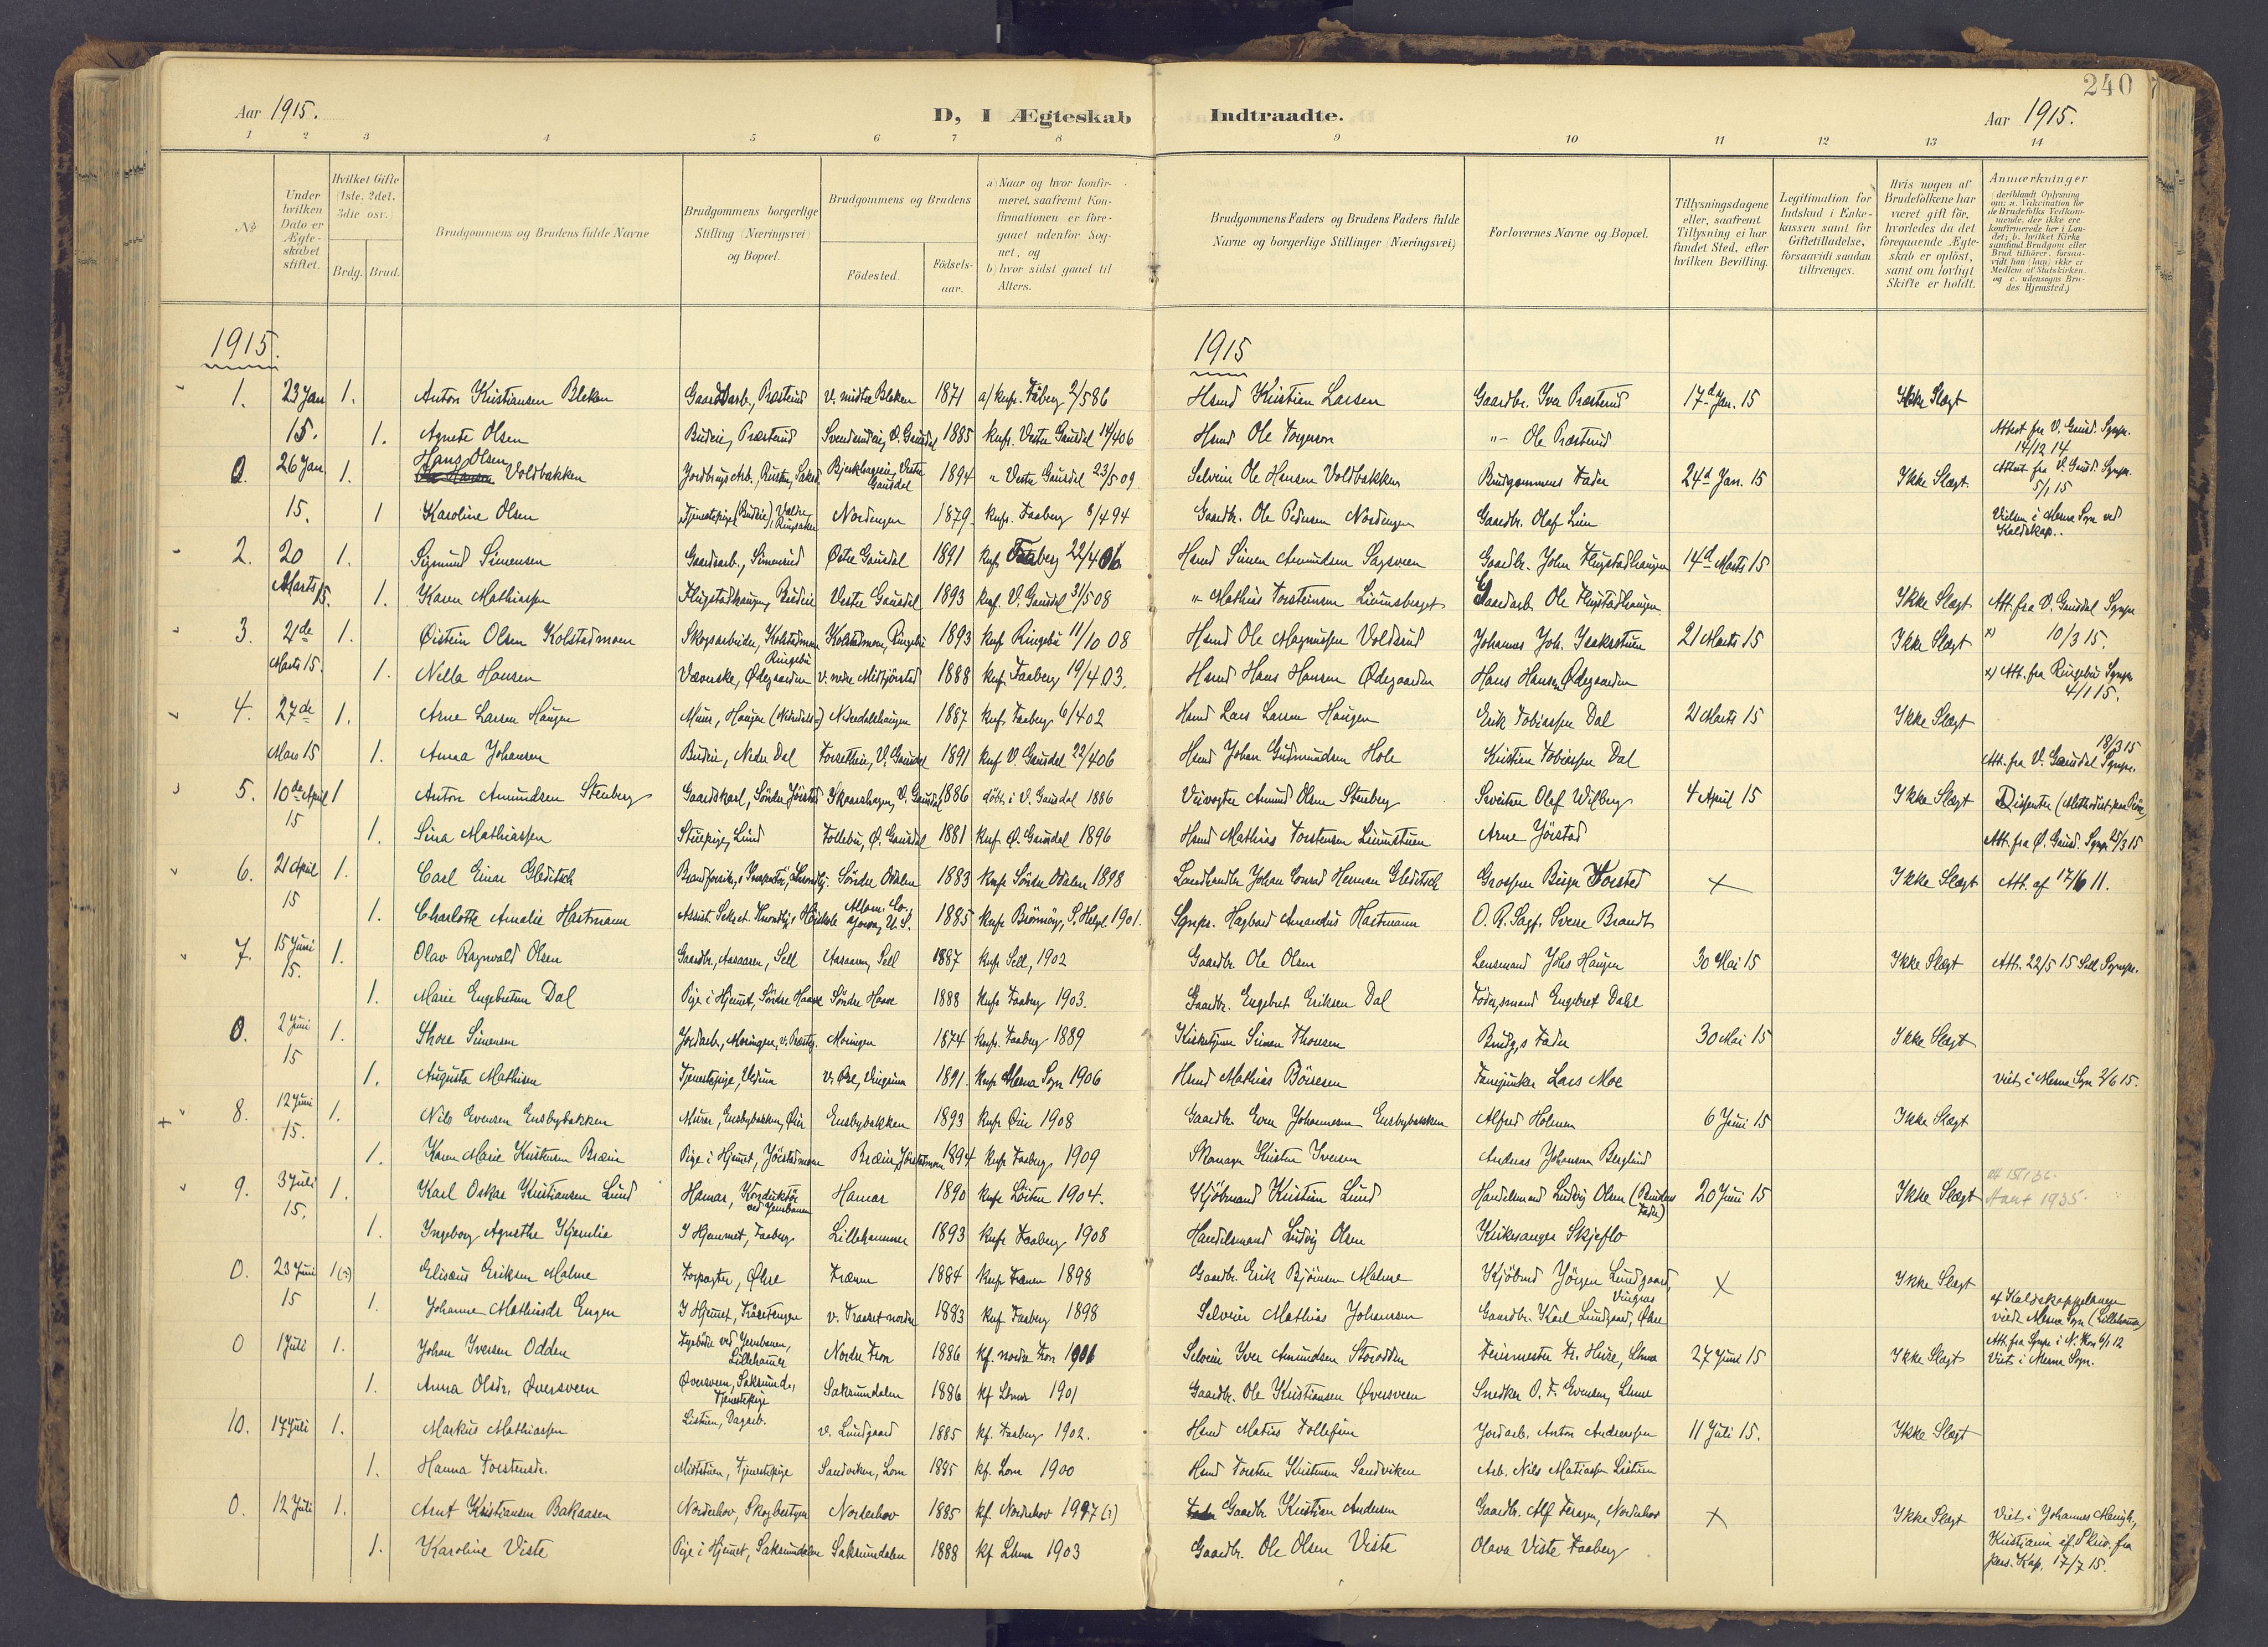 240
Aar 1915.
D, I Ægteskab Indtraadte.
Aar 1915.
1 2 3 4 5 6 7 8 9 10 11 12 13 14
No
Under hvilken Dato er Ægteskabet stiftet.
Hvilket Gifte (1ste. 2det. 3die osv.
Brdg. Brud.
Brudgommens og Brudens fulde Navne
Brudgommens borgerlige Stilling (Næringsvei) og Bopæl.
Brudgommens og Brudens
Födested.
Födselsaar.
a) Naar og hvor konfirmeret, saafremt Konfirmationen er foregaaet udenfor Sognet, og
b) hvor sidst gaaet til Alters.
Brudgommens Faders og Brudens Faders fulde Navne og borgerlige Stillinger (Næringsvei)
Forlovernes Navne og Bopæl.
Tillysningsdagene eller, saafremt Tillysning ei har fundet Sted, efter hvilken Bevilling.
Legitimation for Indskud i Enkekassen samt for Giftetilladelse, forsaavidt saadan tiltrænges.
Hvis nogen af Brudefolkene har været gift för, hvorledes da det foregaaende Ægteskab er oplöst, samt om lovligt Skifte er holdt.
Anmærkninger
1915. 1915
1. 23 Jan 1. Anton Kristiansen Bleken Gaardsarb., Præstrud V. midtre Bleken 1871 a/ knf. Fåberg 2/5 86 Hsmd Kristian Larsen Gaardbr. Iver Præstrud 17d Jan. 15 Ikke Slægt
15. 1. Agnete Olsen Budeie, Præstrud V. Gausdal 1885 knf. Vestre Gausdal 14/4 06 Hsmd Ole Torgerson "- Ole Præstrud Attest fra V. Gausd. Sgnpr. 14/12 14
0. 26 Jan 1. Hans Olsen Voldbakken Vestre Gausdal 1894 " Vestre Gausdal 23/5 09 Selveier Ole Hansen Voldbakken Brudgommens Fader 24d Jan. 15 Ikke Slægt. Attest fra V. Gausd. Sgnpr. 5/1 15
15. 1 Karoline Olsen Tjenestepige (Budeie), Ringsaker Nordengen 1879. knf. Faaberg 8/4 94 Gaardbr. Ole Pedersen Nordengen Gaardbr. Olaf Lien Vielsen i Mesna Sgn ved Kaldskap..
2. 20 1. Sigmund Simensen Gaardsarb., Simensrud Østre Gausdal 1891 knf Faaberg 22/4 06 Hsmd Simen Amundsen Sagsveen Gaardbr. John Flugstadhaugen 14d Marts 15
Marts 15. 1. Karen Mathiassen Flugstadhaugen, Budeie Vestre Gausdal 1893 knf. V. Gausdal 31/5 08 "- Mathias Torsteinsen Gaardarb. Ole Flugstadhaugen Ikke Slægt Att. fra V. Gausdal Sgnpr
3. 21de 1. Øistein Olsen Kolstadmoen Skogsarbeider, Kolstadmoen Ringebu Kolstadmoen, Ringebu 1893 knf Ringebu 11/10 08 Hsmd Ole Magnussen Voldsrud Johannes Joh. Isakstuen 21 Marts 15 Ikke Slægt x) 10/3 15.
Marts 15. 1. Nella Hansen Væverske, Ødegaarden 1888 knf. Faaberg 19/4 03. Hsmd Hans Hansen Ødegaarden Hans Hansen Ødegaarden x) Att. fra Ringebu Sgnpr 4/1 15.
4. 27de 1. Arne Larsen Haugen Murer, Haugen Nederdalshaugen 1887 knf. Faaberg 6/4 02 Hsmd Lars Larsen Haugen Erik Tobiassen Dal 21 Marts 15 Ikke Slægt
Mars 15 1. Anna Johansen Budeie, Nedre Dal V. Gausdal 1891 knf V. Gausdal 22/4 06 Hsmd Johan Gudmundsen Hole Kristian Tobiassen Dal 18/3 15 Att. fra V. Gausdal Sgnpr.
5. 10de April 1 Anton Amundsen Stenberg Gaardskarl, Söndre Jörstad V. Gausdal 1886 döbt i V. Gausdal 1886 Veivogter Amund Olsen Stenberg Sveitser Olaf Wilberg 4 April 15 Ikke Slægt
15 1. Sina Mathiassen Stuepige, Lund Follebu, Ø. Gausdal 1881 knf Ø. Gausdal 1896 Hsmd Mathias Torstensen Arne Jörstad Att. fra Ø. Gausd. Sgnpr. 25/3 15
6. 21 April 1. Carl Einar Gleditsch Söndre Odalen 1883 knf. Söndre Odalen 1898 Landhandler Johan Conrad Herman Gleditsch Grosserer Birger Torsted x Ikke Slægt Att. af 17/6 11.
15 1. Charlotte Amalie Hartmann Iowa, U.S. 1885 knf. Brönnöy, S. Helgl. 1901. Sgnpr. Hagbard Amandus Hartmann O. R. Sagf. Sverre Brandt
7. 15 Juni 1. Olav Ragnvald Olsen Gaardbr., Aasaaren, Sell Aasaaren, Sell 1887 knf. Sell, 1902 Gaardbr. Ole Olsen Lensmand Johs Haugen 30 Mai 15 Ikke Slægt Att. 22/5 15 Sell Sgnpr.
15. 1. Marie Engebretsen Dal Pige i Hjemet, Söndre Haave Söndre Haave 1888 knf. Faaberg 1903. Gaardbr. Engebret Eriksen Dal Födersmand Engebret Dahl
0. 2 Juni 1. Thore Simensen Moringen 1874 knf. Faaberg 1889 Kirketjener Simen Thoresen Brudg.s Fader 30 Mai 15 Ikke Slægt
15 1. Augusta Mathisen Tjenestepige, 1891. knf. Mesna Sogn 1906 Hsmd Mathias Börresen Fanejunker Lars Moe viet i Mesna Sgn 2/6 15.
+ 8. 12 Juni 1. Nils Evensen Ensbybakken Murer, Ensbybakken, Øier Ensbybakken 1893 knf. Øier 1908 Gaardbr. Even Johannesen Ensbybakken Alfred Holmen 6 Juni 15 Ikke Slægt
15. 1. Karen Marie Kristensen Bræin Pige i Hjemet, Jörstadmoen Bræin, Jörstadmoen 1894 knf. Faaberg 1909 Skomager Kristen Iversen Andreas Johansen Berglund
9. 3 Juli 1. Karl Oskar Kristiansen Lund Hamar, Konduktör ved Jernbanen Hamar 1890 knf. Löiten 1904. Kjöbmand Kristian Lund Handelsmand Ludvig Olsen (Brudens Fader) 20 Juni 15 Ikke Slægt
15. 1. Ingeborg Agnethe Kjernlie I Hjemmet, Faaberg Lillehammer 1893 knf. Faaberg 1908 Handelsmand Ludvig Olsen Kirkesanger Skjeflo
0. 23 Juni 1(?) Elisæus Eriksen Malme Forpagter, Øhre Frænen 1884 knf. Frænen 1898 Gaardbr. Erik Björnsen Malme Kjöbmd Jörgen Lundgaard, Vingrom x Ikke Slægt
15 1. Johanne Mathiasdr Engen I Hjemet, 1883 knf. Faaberg 1898 Selveier Mathias Johansen Gaardbr. Karl Lundgaard, Øhre
0 1 Juli 1. Johan Iversen Odden ved Jernbanen, Lillehammer Nordre Fron 1886 kf. nordre Fron 1906 Selveier Iver Amundsen Storodden Feiermester Fr. Huse, Lhmr 27 Juni 15 Ikke Slægt Viet i Mesna Sogn.
1. Anna Olsdr. Øversveen Øversveen, Saksumd., Tjenestepige Saksumdalen 1886 kf Lhmr 1901 Gaardbr. Ole Kristiansen Øversveen Snedker O. F. Evensen, Lhmr
10. 17 Juli 1. Markus Mathiassen Listuen, Dagarb. v. Lundgaard 1885 kf. Faaberg 1902. Hsmd Matias Tollefsen Jordarb. Anton Andreassen 11 Juli 15. Ikke Slægt
1. Hanna Torstensdr. Midtstuen, Tjenestepige Sandviken, Lom 1885 kf. Lom 1900 Hsmd Torsten Kristensen Sandviken Arb. Nils Matiassen Listuen
0. 12 Juli 1. Arnt Kristiansen Bakaasen Norderhov, Norderhov 1885 kf. Norderhov 1997 (?) Gaardbr. Kristian Andersen Gaardbr. Alf Feragen, Norderhov x Ikke Slægt Viet i Johannes Menigh.,
1. Karoline Viste Pige i Hjemet, Saksumdalen Saksumdalen 1888 kf Lhmr 1903 Gaardbr. Ole Olsen Viste Olava Viste Faaberg Kristiania if. Skriv. fra pers. Kap. 17/7 15.